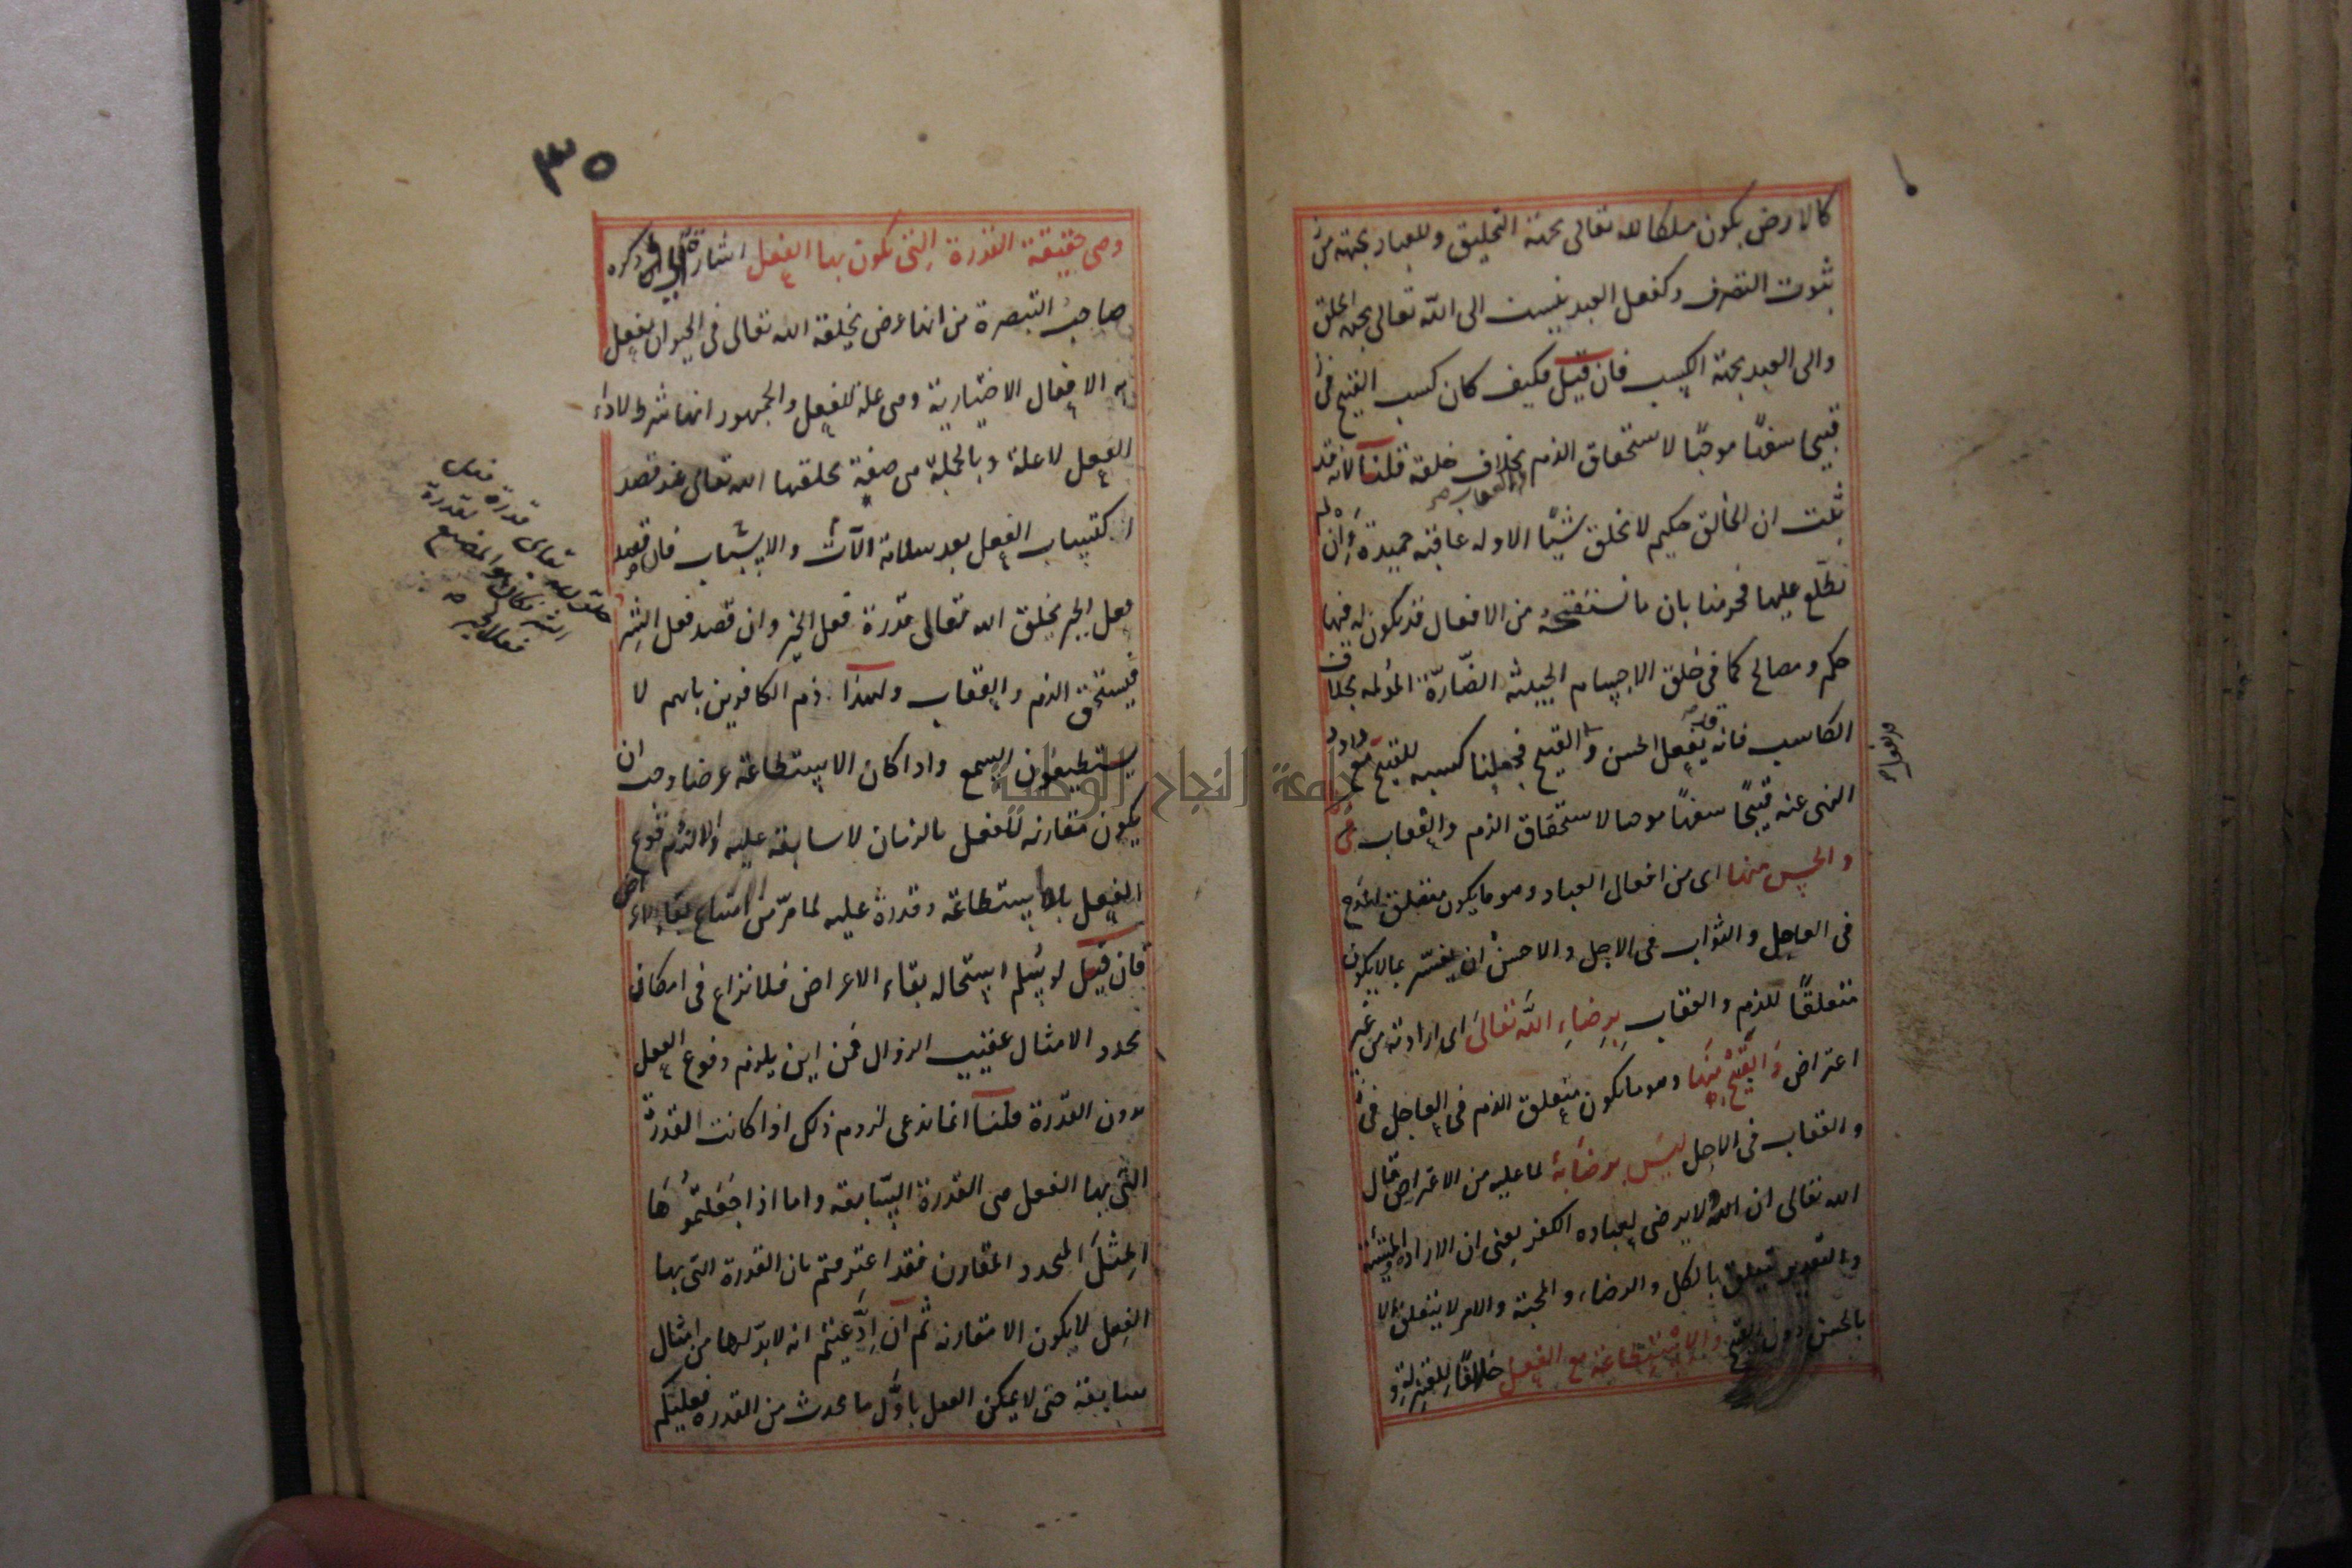 كالارض يكون ملكا لله تعالى بجهة التخليق وللعباد بجهة من
ثبوت التصرف وكفعل العبد ينسب الى الله تعالى بجهة الخلق
والى العبد بجهة الكسب فان قيل فكيف كان كسب القبيح
قبيحا سفها موجبا لاستحقاق الذم بخلاف خلقه قلنا لانه قد
والعقاب
ثبت ان الخالق حكيم لا يخلق شيئا الا وله عاقبة حميدة وان لم
نطلع عليها فجزمنا بان ما نستقبحه من الافعال قد يكون له فيها
حكم ومصالح كما في خلق الاجسام الخبيثة الضارة المؤلمة بخلاف
الكاسب فانه قد يفعل الحسن والقبيح فجعلنا كسبه للقبيح مع ورود
النهى عنه قبيحا سفها موجبا لاستحقاق الذم والعقاب
والحسن منها اى من افعال العباد وهو ما يكون متعلق المدح
فى العاجل والثواب فى الاجل والاحسن ان يفسر بما لا يكون
متعلقا للذم والعقاب برضاء الله تعالى اى ارادته من غير
اعتراض والقبيح منها وهو ما يكون متعلق الذم فى العاجل
والعقاب فى الاجل ليس برضائه لما عليه من الاعتراض قال
الله تعالى ان الله لا يرضى لعباده الكفر يعنى ان الارادة والمشيئة
والتقدير يتعلق بالكل والرضاء والمحبة والامر لا يتعلق الا
بالحسن دون القبيح والاستطاعة مع الفعل خلافا للمعتزلة و
٣٥
وهى حقيقة القدرة التى يكون بها الفعل اشارة الى ما ذكره
صاحب التبصرة من انها عرض يخلقه الله تعالى فى الحيوان يفعل
به الافعال الاختيارية وهى علة للفعل والجمهور انها شرط لاداء
الفعل لا علة وبالجملة هى صفة يخلقها الله تعالى عند قصد
اكتساب الفعل بعد سلامة الآلات والاسباب فان قصد
فعل الخير يخلق الله تعالى قدرة فعل الخير وان قصد فعل الشر
خلق الله تعالى قدرة فعل
الشر فكان هو المضيع لقدرة
فعل الخير
فيستحق الذم والعقاب ولهذا ذم الكافرين بانهم لا
يستطيعون السمع واذا كان الاستطاعة عرضا وجب ان
يكون مقارنه للفعل بالزمان لا سابقة عليه والا لزم وقوع
الفعل بلا استطاعة وقدرة عليه لما مر من امتناع بقاء الاعراض
فان قيل لو سلم استحالة بقاء الاعراض فلا نزاع فى امكان
تجدد الامثال عقيب الزوال فمن اين يلزم وقوع الفعل
بدون القدرة قلنا انما ندعى لزوم ذلك اذا كانت القدرة
التى بها الفعل هى القدرة السابقه واما اذا جعلتموها
المثل المتجدد المقارن فقد اعترفتم بان القدرة التى بها
الفعل لا يكون الا مقارنه ثم ان ادعيتم انه لا بد لها من امثال
سابقة حتى لا يمكن الفعل باول ما يحدث من القدرة فعليكم
جامعة النجاح الوطنية